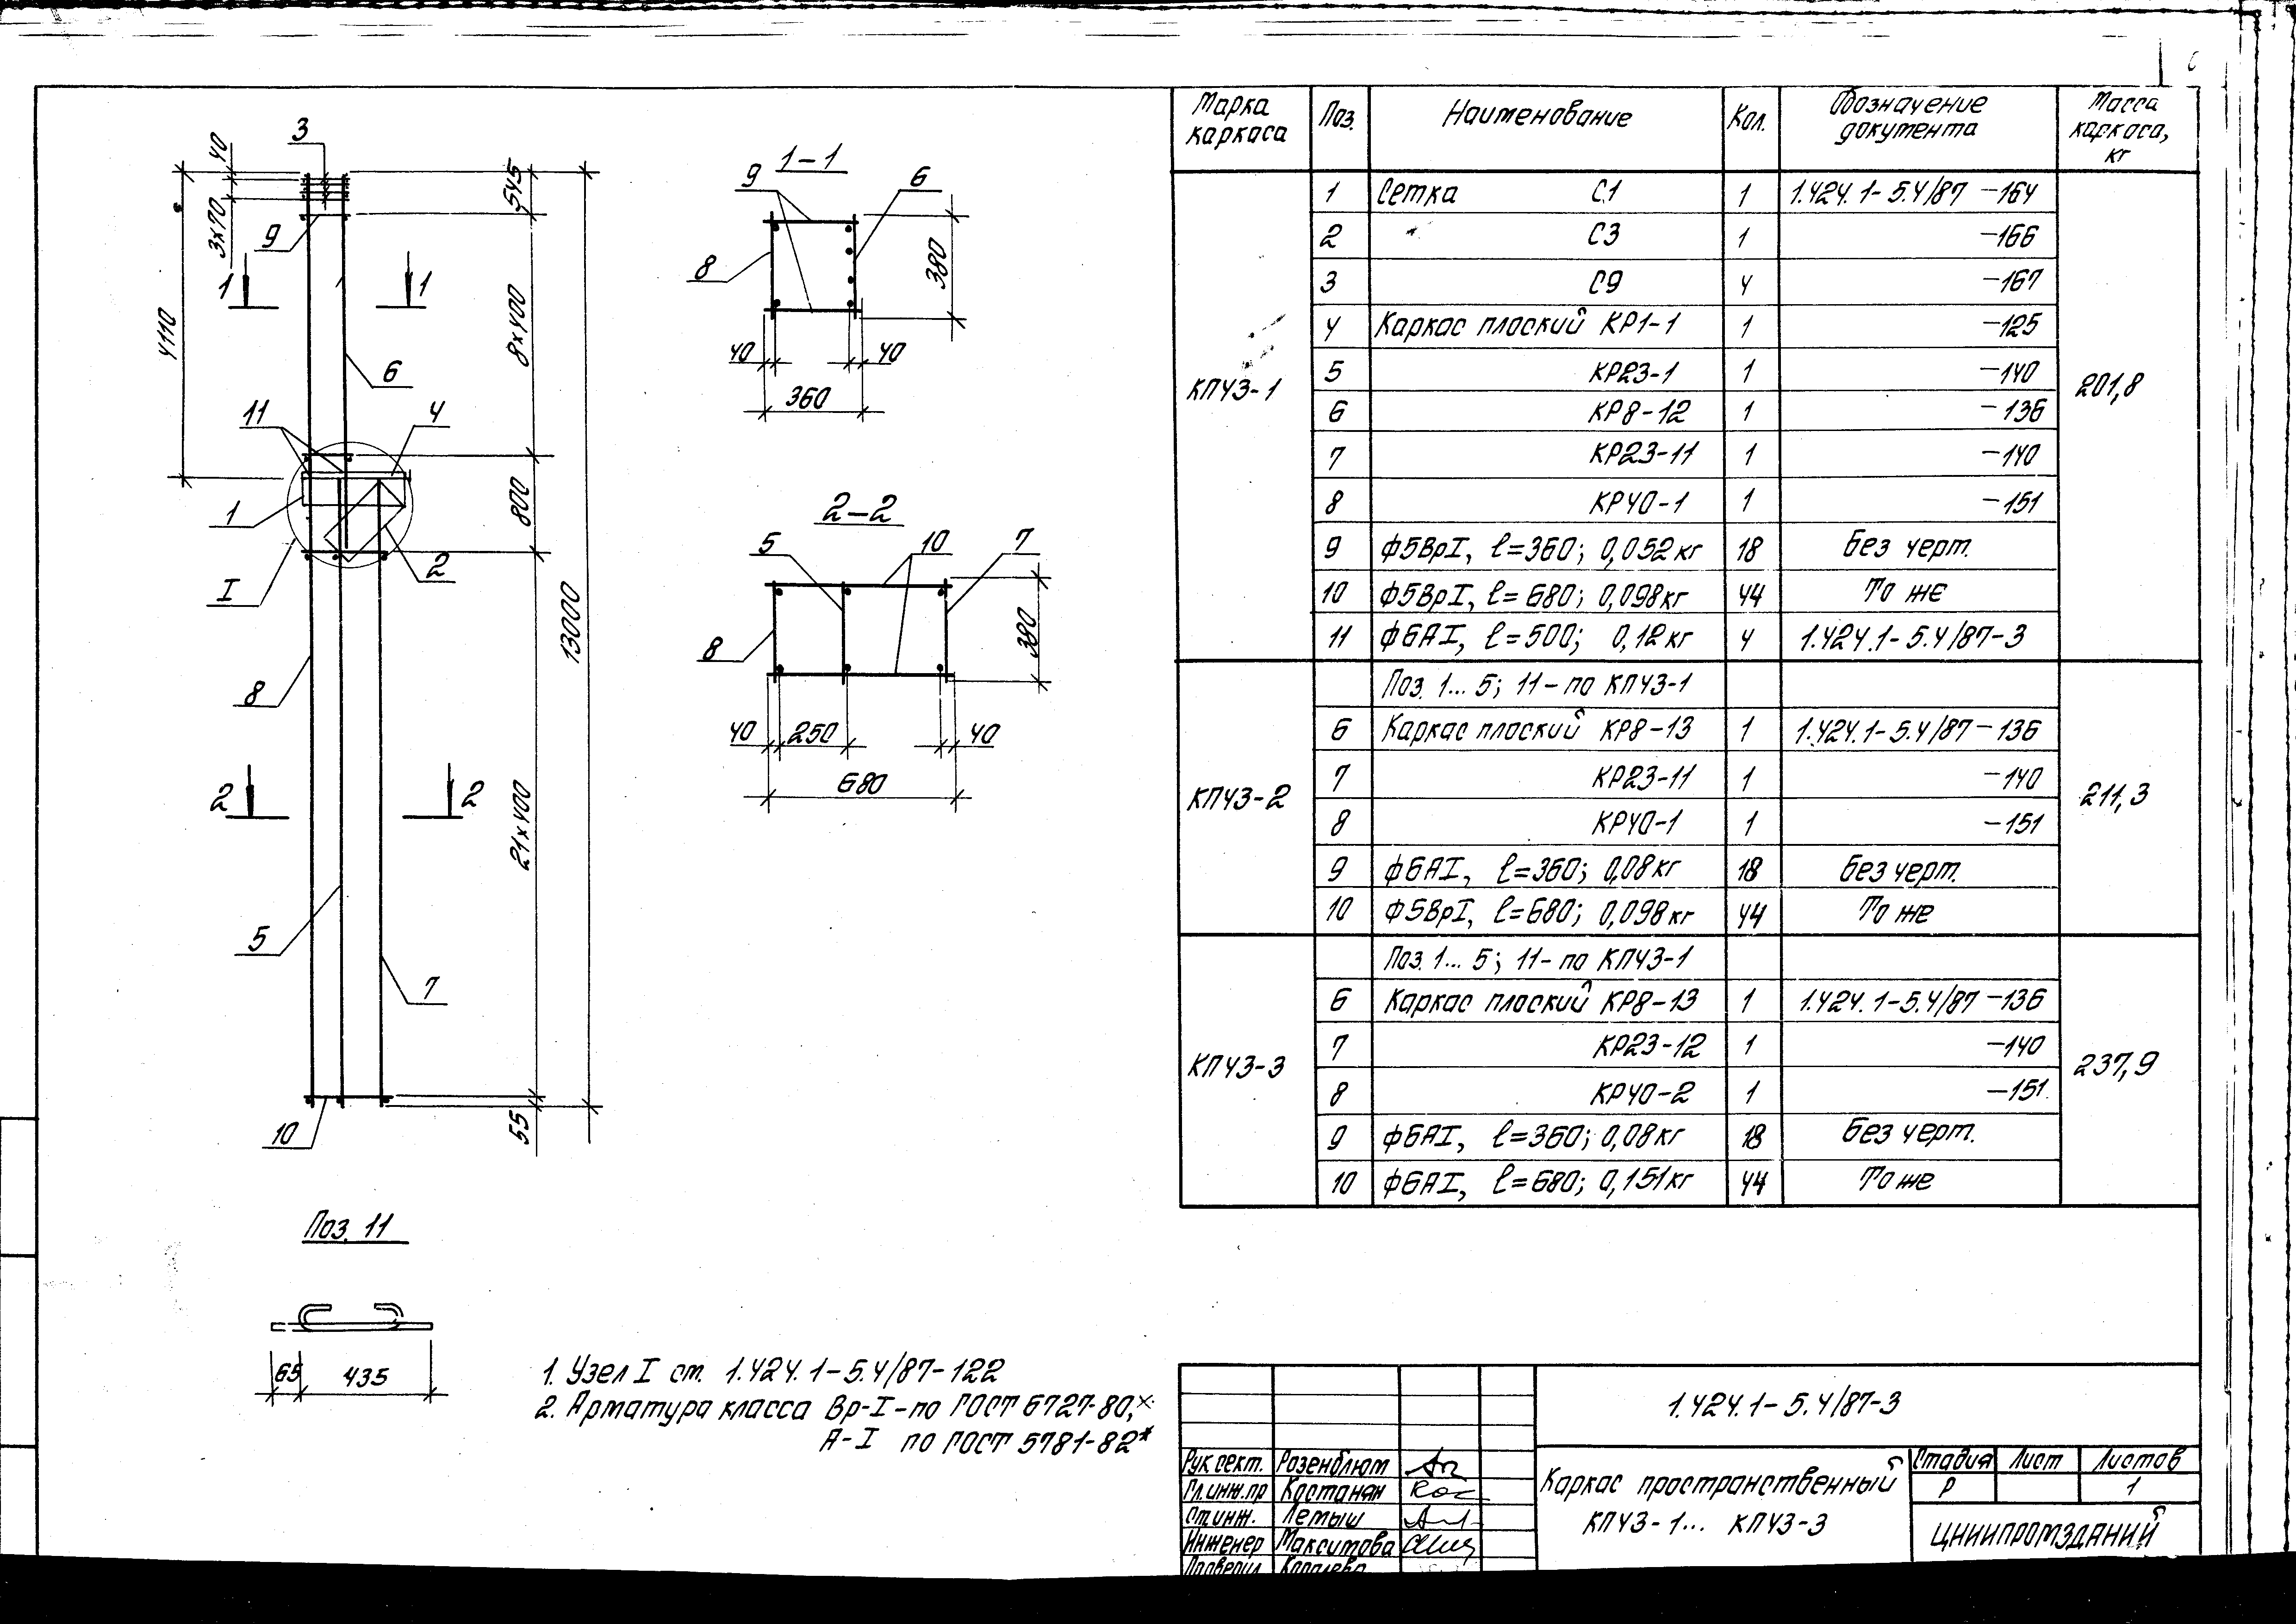 Марка каркаса | Поз. | Наименование | Кол. | Обозначение документа | Масса каркаса, кг
КП43-1 | 1 | Сетка С1 | 1 | 1.424.1-5.4/87 -164 | 201,8
2 | С3 | 1 | -166
3 | С9 | 4 | -167
4 | Каркас плоский КР1-1 | 1 | -125
5 | КР23-1 | 1 | -140
6 | КР8-12 | 1 | -136
7 | КР23-11 | 1 | -140
8 | КР40-1 | 1 | -151
9 | ф5ВрI, ℓ=360; 0,052кг | 18 | Без черт.
10 | ф5ВрI, ℓ=680; 0,098кг | 44 | То же
11 | ф6АI, ℓ=500; 0,12кг | 4 | 1.424.1-5.4/87-3
КП43-2 | Поз. 1... 5; 11-по КП43-1 | 211,3
6 | Каркас плоский КР8-13 | 1 | 1.424.1-5.4/87-136
7 | КР23-11 | 1 | -140
8 | КР40-1 | 1 | -151
9 | ф6АI, ℓ=360; 0,08кг | 18 | Без черт.
10 | ф5ВрI, ℓ=680; 0,098кг | 44 | То же
КП43-3 | Поз. 1... 5; 11-по КП43-1 | 237,9
6 | Каркас плоский КР8-13 | 1 | 1.424.1-5.4/87-136
7 | КР23-12 | 1 | -140
8 | КР40-2 | 1 | -151
9 | ф6АI, ℓ=360; 0,08кг | 18 | Без черт.
10 | ф6АI, ℓ=680; 0,151кг | 44 | То же
3
40
545
3х70
9
1 1
4110
8х400
6
11
4
1
800
2
I
13000
8
2 2
21х400
5
7
10
55
1-1
9
6
8
380
40
40
360
2-2
5
10
7
8
380
40
250
40
680
Поз. 11
65
435
1. Узел I см. 1.424.1-5.4/87-122
2. Арматура класса Вр-I-по ГОСТ 6727-80,*
А-I по ГОСТ 5781-82*
1.424.1-5.4/87-3
Рук.сект. Розенблюм
Гл.инж.пр Костанян
Ст.инж. Лемыш
Инженер Максимова
Проверил Королева
Каркас пространственный
КП43-1... КП43-3
Стадия | Лист | Листов
Р | | 1
ЦНИИПРОМЗДАНИЙ